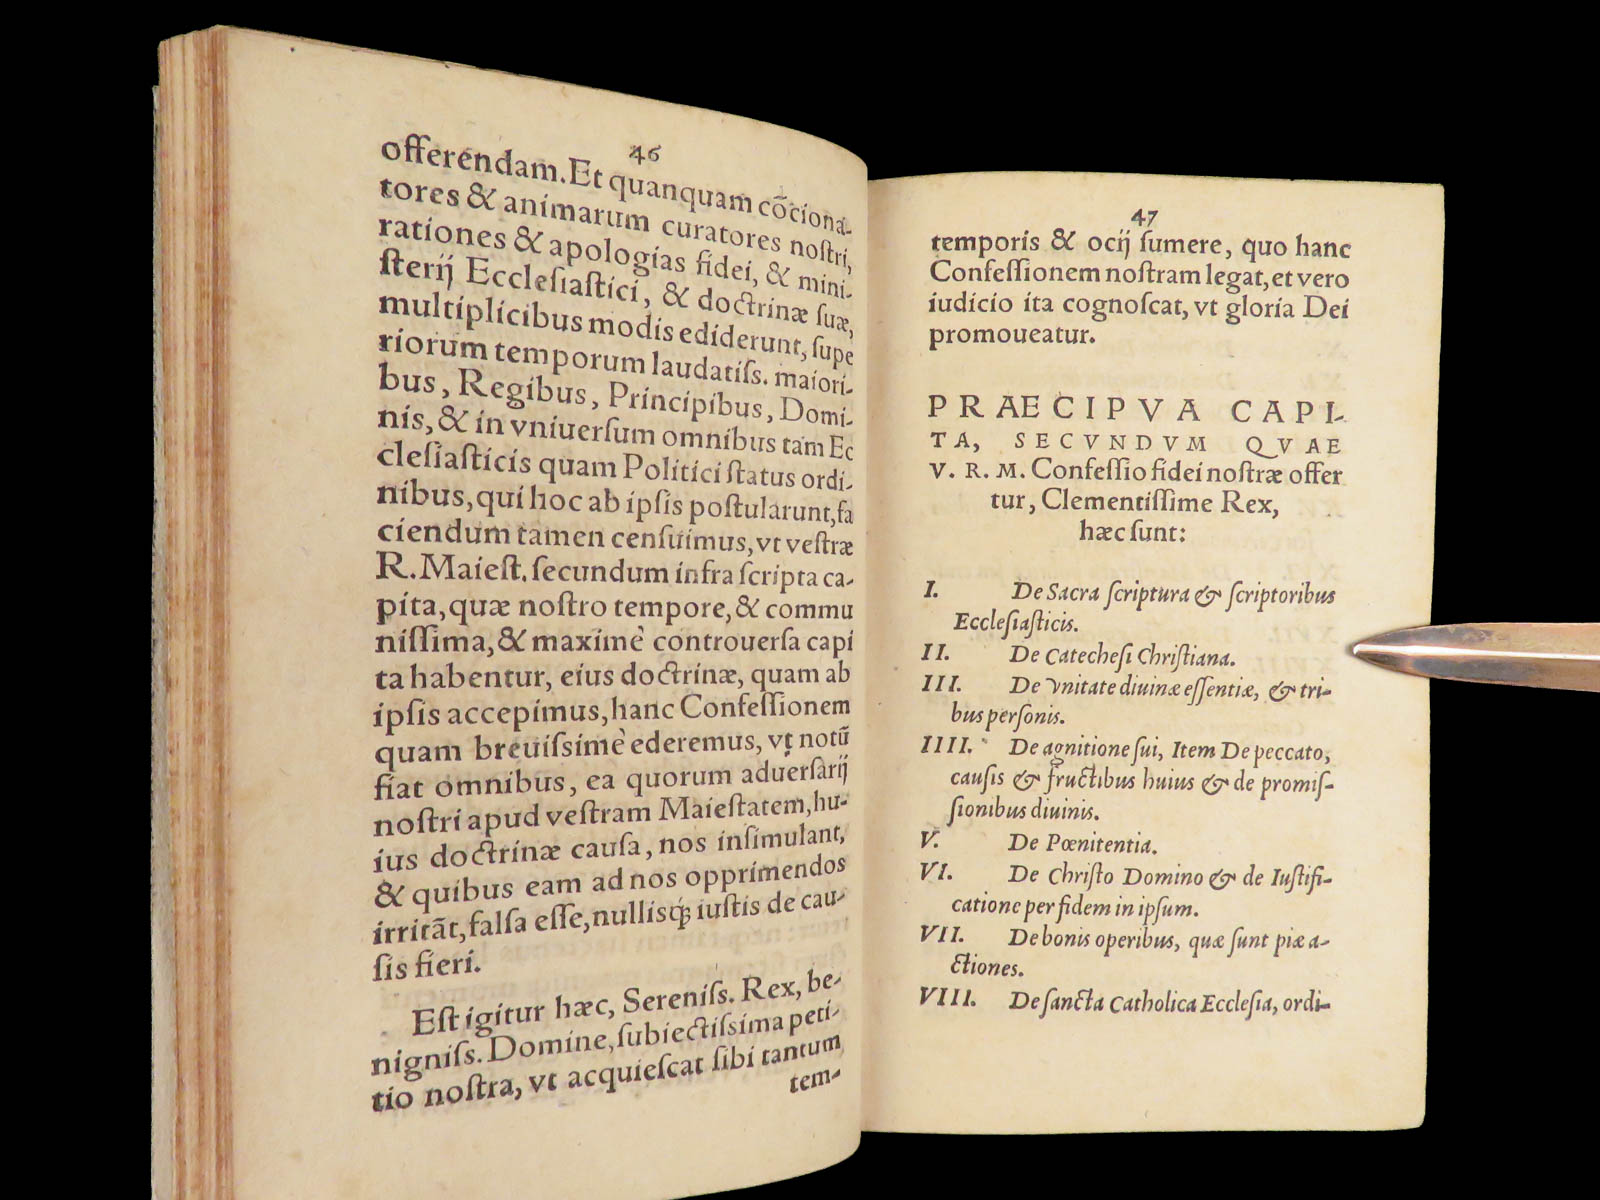 46
offerendam. Et quanquam cõciona-
tores & animarum curatores noſtri,
rationes & apologias fidei, & mini-
ſterij Eccleſiaſtici, & doctrinæ ſuæ,
multiplicibus modis ediderunt, ſupe
riorum temporum laudatiſs. maiori-
bus, Regibus, Principibus, Domi-
nis, & in vniuerſum omnibus tam Ec
cleſiaſticis quam Politici ſtatus ordi-
nibus, qui hoc ab ipſis poſtularunt, fa
ciendum tamen cenſuimus, vt veſtræ
R. Maieſt. ſecundum infra ſcripta ca-
pita, quæ noſtro tempore, & commu
niſſima, & maximè controuerſa capi
ta habentur, eius doctrinæ, quam ab
ipſis accepimus, hanc Confeſſionem
quam breuiſsimè ederemus, vt notũ
fiat omnibus, ea quorum aduerſarij
noſtri apud veſtram Maieſtatem, hu-
ius doctrinæ cauſa, nos inſimulant,
& quibus eam ad nos opprimendos
irritãt, falſa eſſe, nullisq́; iuſtis de cau-
ſis fieri.
Eſt igitur hæc, Sereniſs. Rex, be-
nigniſs. Domine, ſubiectiſsima peti-
tio noſtra, vt acquieſcat ſibi tantum
tem-
47
temporis & ocij ſumere, quo hanc
Confeſſionem noſtram legat, et vero
iudicio ita cognoſcat, vt gloria Dei
promoueatur.
PRAECIPVA CAPI-
TA, SECVNDVM QVAE
V. R. M. Confeſſio fidei noſtræ offer
tur, Clementiſſime Rex,
hæc ſunt:
I. De Sacra ſcriptura & ſcriptoribus
Eccleſiaſticis.
II. De Catecheſi Chriſtiana.
III. De vnitate diuinæ eſſentiæ, & tri-
bus perſonis.
IIII. De agnitione ſui, Item De peccato,
cauſis & fructibus huius & de promiſ-
ſionibus diuinis.
V. De Pœnitentia.
VI. De Chriſto Domino & de Iuſtifi-
catione per fidem in ipſum.
VII. De bonis operibus, quæ ſunt piæ a-
ctiones.
VIII. De ſancta Catholica Eccleſia, ordi-